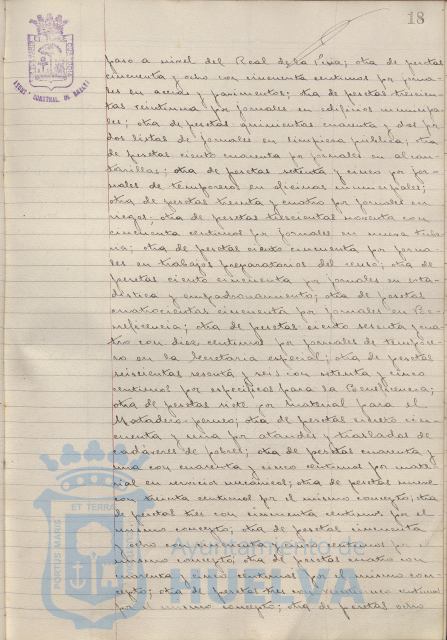 18
paso a nivel del Real de la Feria; otra de pesetas
cincuenta y ocho con cincuenta centimos por jorna-
les en aceras y pavimentos; otra de pesetas trescien-
tas veintiuna por jornales en edificios municipa-
les; otra de pesetas quinientas cuarenta y dos por
dos listas de jornales en limpieza pública; otra
de pesetas ciento cuarenta por jornales en alcan-
tarillas; otra de pesetas setenta y cinco por jor-
nales de temporeros en oficinas municipales;
otra de pesetas treinta y cuatro por jornales en
riegos; otra de pesetas trescientas noventa con
cincuenta centimos por jornales en nueva tube-
ria; otra de pesetas ciento cincuenta por jorna-
les en trabajos preparatorios del censo; otra de
pesetas ciento cincuenta por jornales en esta-
distica y empadronamiento; otra de pesetas
cuatrocientas cincuenta por jornales en Be-
neficencia; otra de pesetas ciento sesenta y cua-
tro con diez centimos por jornales de tempore-
ro en la Secretaria especial; otra de pesetas
seiscientas sesenta y seis con setenta y cinco
centimos por especificos para la Beneficencia;
otra de pesetas siete por material para el
Matadero; otra de pesetas ciento cin-
cuenta y una por ataudes y traslados de
cadáveres de pobres; otra de pesetas cuarenta y
una con cuarenta y cinco centimos por mate-
rial en servicios mecanicos; otra de pesetas nueve
con treinta centimos por el mismo concepto; otra
de pesetas tres con cincuenta centimos por el
mismo concepto; otra de pesetas cincuenta
y ocho con cincuenta y cinco centimos por
mismo concepto; otra de pesetas cuatro con
cuarenta y cinco centimos por el mismo con-
cepto; otra de pesetas tres con centimos
por el mismo concepto; otra de pesetas ocho
PORTUS MARIS ET TERRAE
Ayuntamiento de
HUELVA